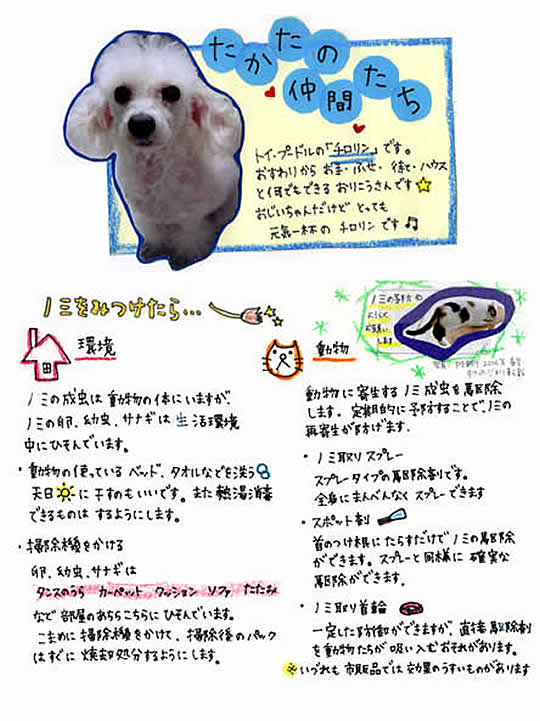 たかたの
仲間たち
トイ・プードルの「チロリン」です。
おすわりから お手・ふせ・待て・ハウス
と何でもできる おりこうさんです
おじいちゃんだけど とっても
元気一杯の チロリン です♫
ノミをみつけたら…
環境
ノミの成虫は動物の体にいますが、
ノミの卵、幼虫、サナギは生活環境
中にひそんでいます。
・動物の使っている ベッド、タオルなどを洗う
天日 に干すのもいいです。また熱湯消毒
できるものは するようにします。
・掃除機をかける
卵、幼虫、サナギは
タンスのうら カーペット クッション ソファ たたみ
など 部屋のあちらこちらにひそんでいます。
こまめに掃除機をかけて、掃除後のパック
はすぐに焼却処分するようにします。
ノミの予防の
お願い
します
動物
動物に寄生するノミ成虫を駆除
します。定期的に予防することで、ノミの
再寄生が防げます。
・ノミ取りスプレー
スプレータイプの駆除剤です。
全身にまんべんなく スプレーできます
・スポット剤
首のつけ根にたらすだけでノミの駆除
ができます。スプレーと同様に 確実な
駆除ができます。
・ノミ取り首輪
一定した防御ができますが、直接駆除剤
を動物たちが吸い込むおそれがあります。
※いづれも 市販品では効果のうすいものがあります